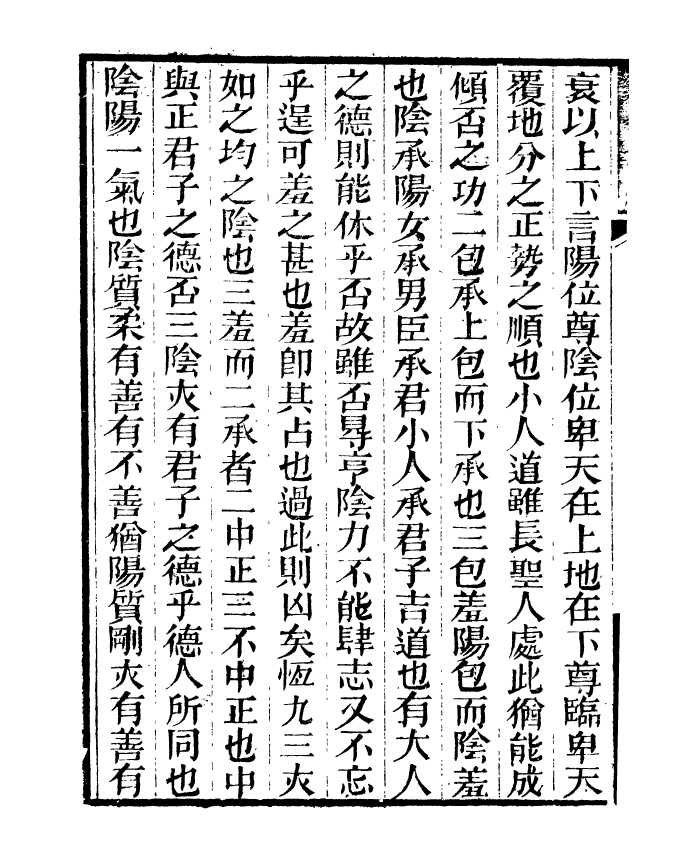 衰以上下言陽位尊陰位卑天在上地在下尊臨卑天
覆地分之正勢之順也小人道雖長聖人處此猶能成
傾否之功二包承上包而下承也三包羞陽包而陰羞
也陰承陽女承男臣承君小人承君子吉道也有大人
之德則能休乎否故雖否㝵亨陰力不能肆志又不忘
乎逞可羞之甚也羞卽其占也過此則凶矣恆九三亦
如之均之陰也三羞而二承者二中正三不中正也中
與正君子之德否三陰亦有君子之德乎德人所同也
陰陽一氣也陰質柔有善有不善猶陽質剛亦有善有